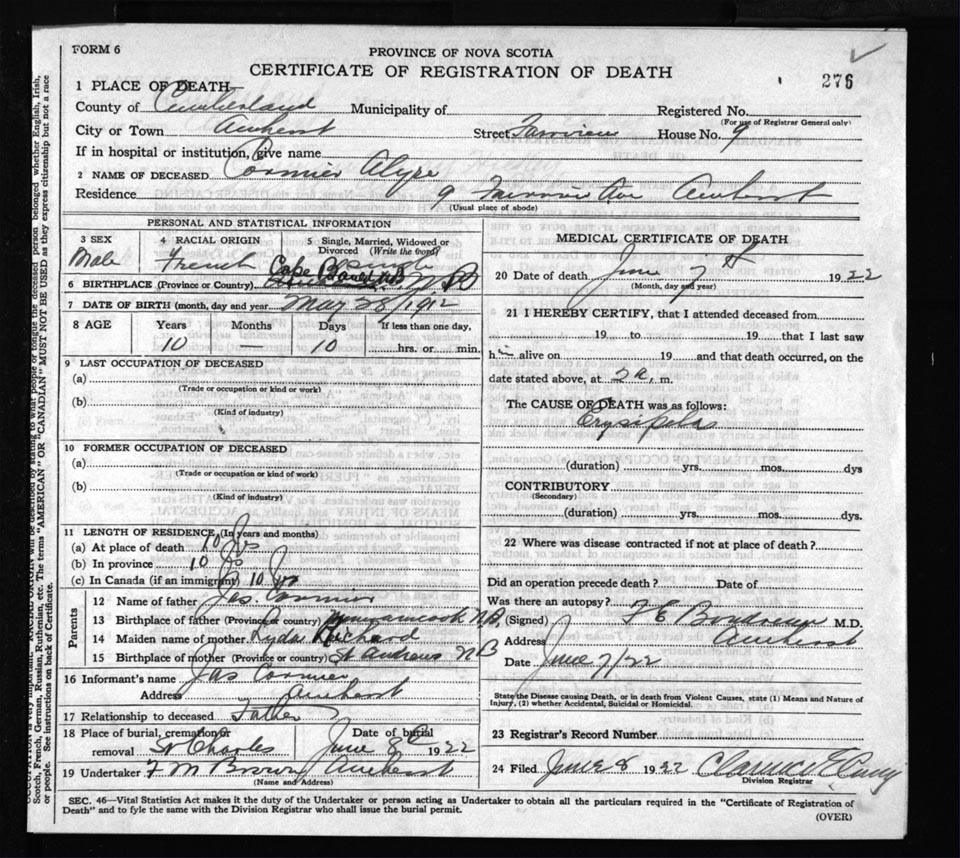 FORM 6
PROVINCE OF NOVA SCOTIA
CERTIFICATE OF REGISTRATION OF DEATH
276
1 PLACE OF DEATH
County of Cumberland Municipality of Registered No.
(For use of Registrar General only)
City or Town Amherst Street Fairview House No. 9
If in hospital or institution, give name
2 NAME OF DECEASED Cormier Alyre
Residence 9 Fairview Ave Amherst
(Usual place of abode)
PERSONAL AND STATISTICAL INFORMATION
3 SEX 4 RACIAL ORIGIN 5 Single, Married, Widowed or Divorced (Write the word)
Male French Single
6 BIRTHPLACE (Province or Country) Cape Bauld NB
7 DATE OF BIRTH (month, day and year) May 28/1912
8 AGE Years Months Days If less than one day,
10 — 10 hrs. or min.
9 LAST OCCUPATION OF DECEASED
(a)
(Trade or occupation or kind or work)
(b)
(Kind of industry)
10 FORMER OCCUPATION OF DECEASED
(a)
(Trade or occupation or kind of work)
(b)
(Kind of industry)
11 LENGTH OF RESIDENCE (In years and months)
(a) At place of death 10 Yrs
(b) In province 10 Yrs
(c) In Canada (if an immigrant) 10 Yrs
Parents
12 Name of father Jas. Cormier
13 Birthplace of father (Province or country) Memramcook N.B.
14 Maiden name of mother Lydia Richard
15 Birthplace of mother (Province or country) St Andrews NB
16 Informant's name Jas Cormier
Address Amherst
17 Relationship to deceased Father
18 Place of burial, cremation or removal St Charles Date of burial June 8th 1922
19 Undertaker F M Brown Amherst
(Name and Address)
MEDICAL CERTIFICATE OF DEATH
20 Date of death June 7th 1922
(Month, day and year)
21 I HEREBY CERTIFY, that I attended deceased from
19 to 19 that I last saw
him alive on 19 and that death occurred, on the
date stated above, at 2 a. m.
The CAUSE OF DEATH was as follows:
Erysipelas
(duration) yrs. mos. dys
CONTRIBUTORY
(Secondary)
(duration) yrs. mos. dys.
22 Where was disease contracted if not at place of death?
Did an operation precede death? Date of
Was there an autopsy?
(Signed) F E Boudreau M.D.
Address Amherst
Date June 7/22
State the Disease causing Death, or in death from Violent Causes, state (1) Means and Nature of
Injury, (2) whether Accidental, Suicidal or Homicidal.
23 Registrar's Record Number
24 Filed June 8 1922
Division Registrar
SEC. 46—Vital Statistics Act makes it the duty of the Undertaker or person acting as Undertaker to obtain all the particulars required in the "Certificate of Registration of
Death" and to fyle the same with the Division Registrar who shall issue the burial permit.
(OVER)
Scotch, French, German, Russian, Ruthenian, etc. The terms "AMERICAN" OR "CANADIAN" MUST NOT BE USED as they express citizenship but not a race
or people. See instructions on back of Certificate.